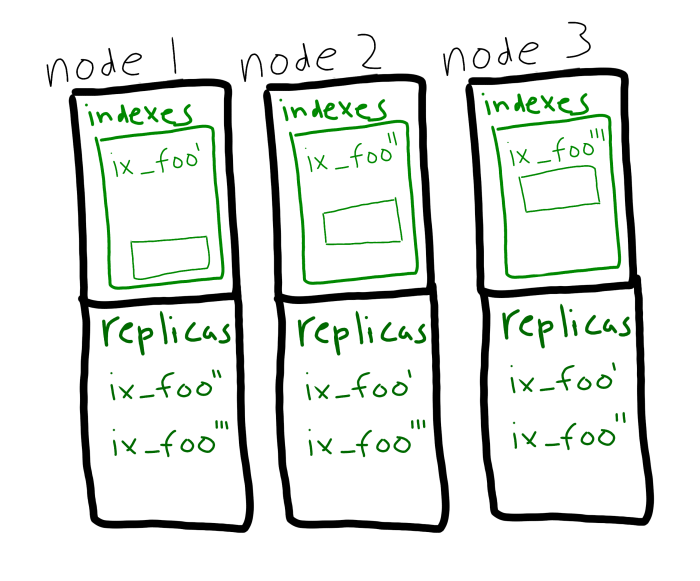 node 1
indexes
ix_foo'
replicas
ix_foo''
ix_foo'''
node 2
indexes
ix_foo''
replicas
ix_foo'
ix_foo'''
node 3
indexes
ix_foo'''
replicas
ix_foo'
ix_foo''